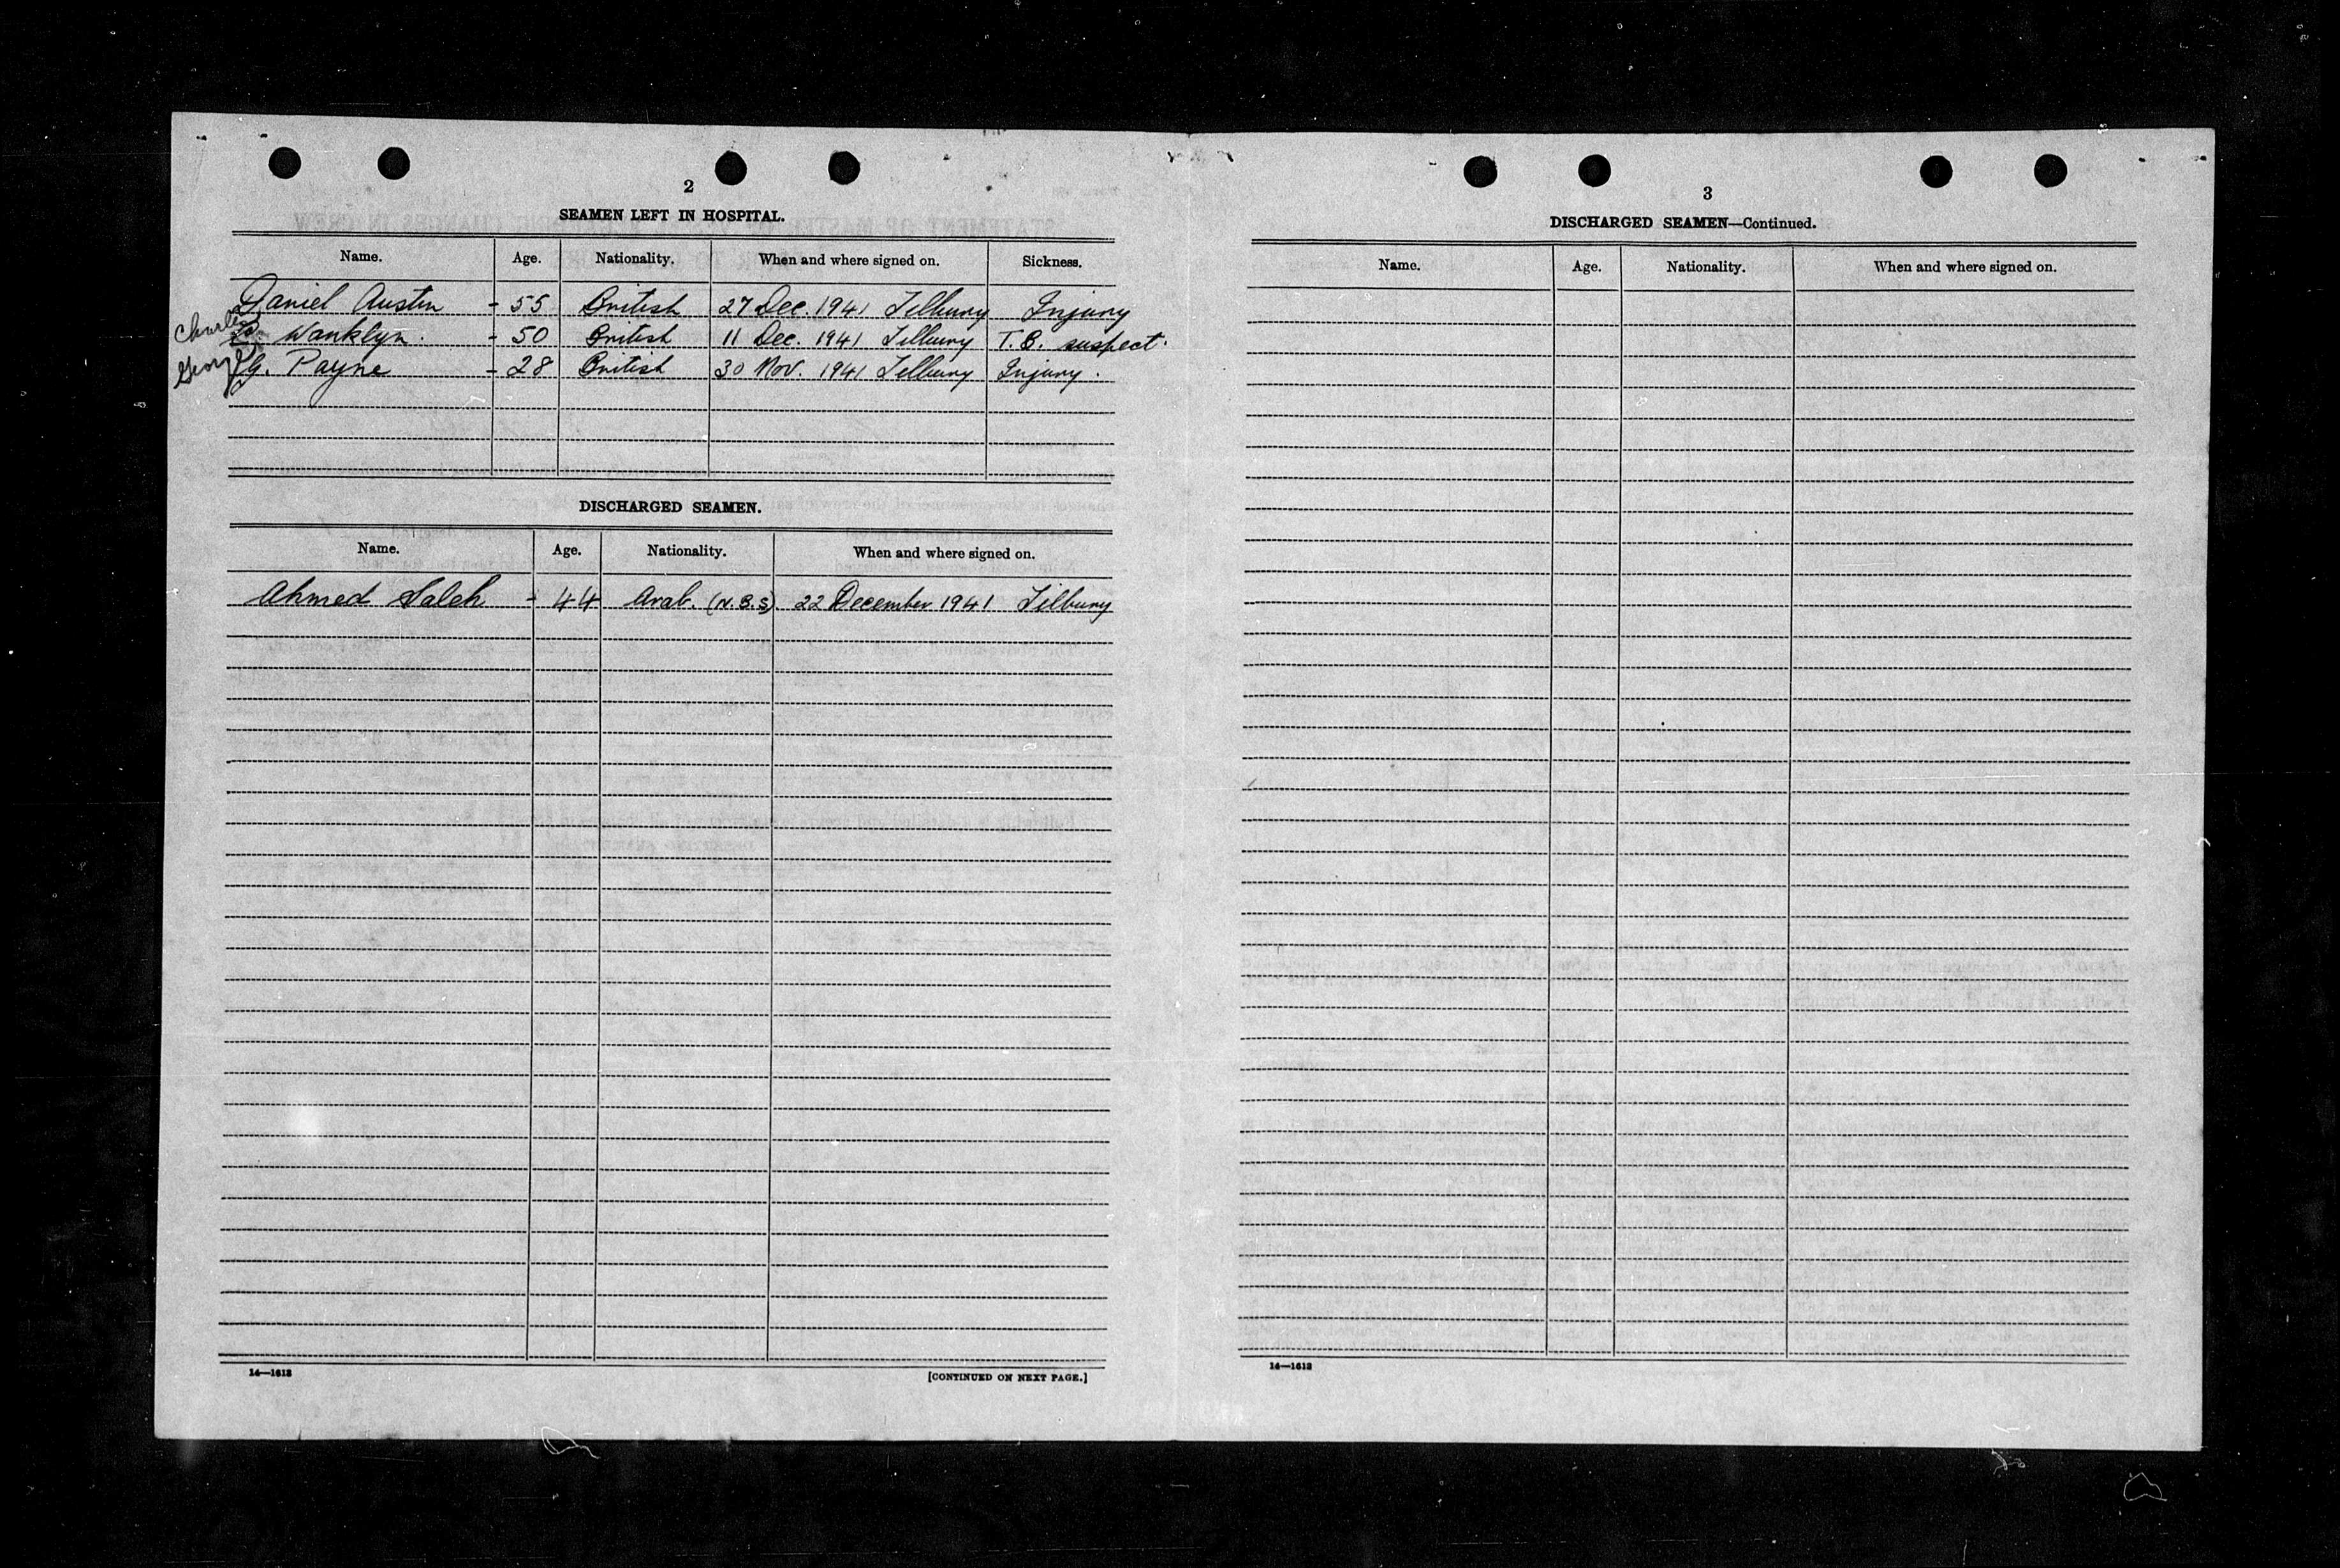 2
SEAMEN LEFT IN HOSPITAL.
Name. Age. Nationality. When and where signed on. Sickness.
Daniel Austin - 55 British 27 Dec. 1941 Tilbury Injury
Charles Wanklyn. - 50 British 11 Dec. 1941 Tilbury T.B. suspect.
George G. Payne - 28 British 30 Nov. 1941 Tilbury Injury.
DISCHARGED SEAMEN.
Name. Age. Nationality. When and where signed on.
Ahmed Saleh - 44 Arab. (N.B.S) 22 December 1941 Tilbury
14—1613
[CONTINUED ON NEXT PAGE.]
3
DISCHARGED SEAMEN—Continued.
Name. Age. Nationality. When and where signed on.
14—1613